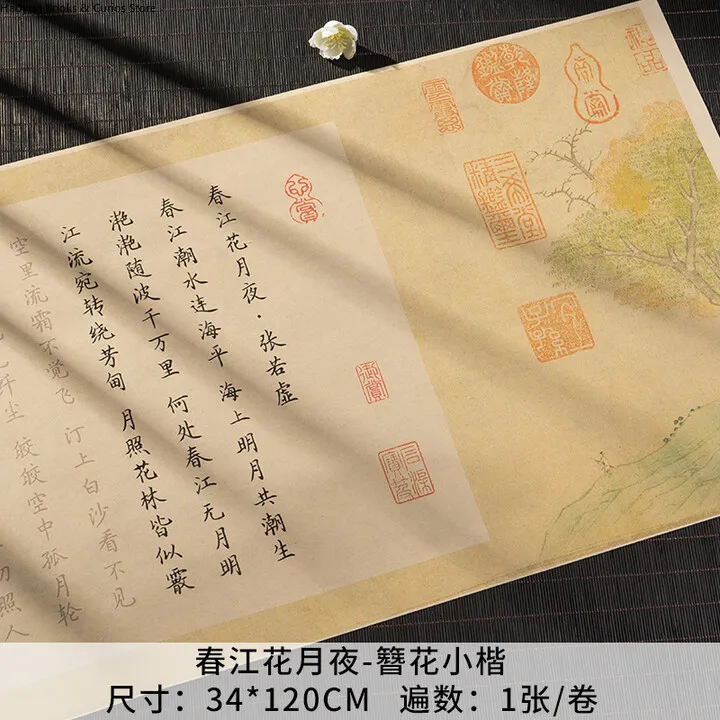 Books & Curios Store
乾隆鉴赏
三希堂精鉴玺
御赏
春江花月夜·张若虚
春江潮水连海平 海上明月共潮生
滟滟随波千万里 何处春江无月明
江流宛转绕芳甸 月照花林皆似霰
空里流霜不觉飞 汀上白沙看不见
纤尘 皎皎空中孤月轮
初照人
春江花月夜-簪花小楷
尺寸：34*120CM 遍数：1张/卷